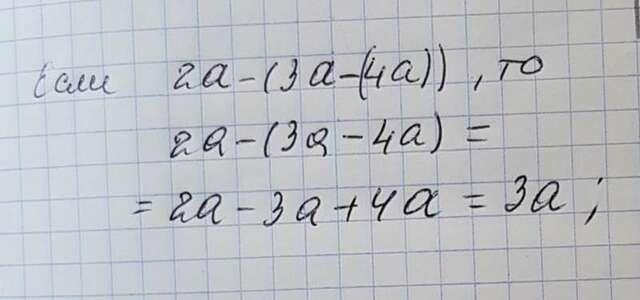 Если 2a-(3a-(4a)), то
2a-(3a-4a)=
=2a-3a+4a=3a;